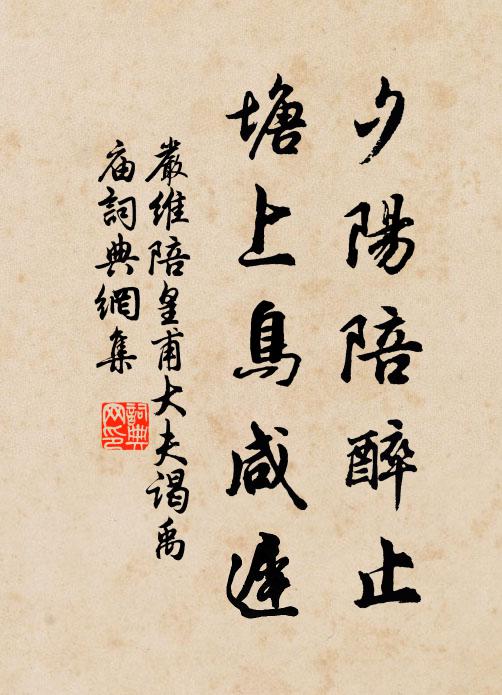 夕陽陪醉止
塘上鳥咸遲
嚴維陪皇甫大夫謁禹
庙詞典網集
詞典
网印